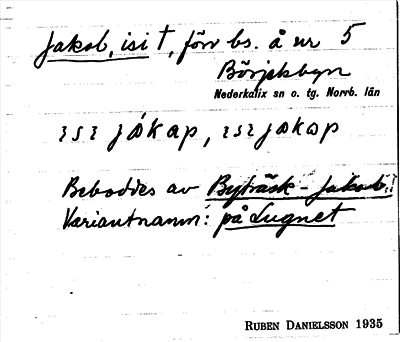 Jakob, isi †, förv bs. å nr 5
Börjelsbyn
Nederkalix sn o. tg. Norrb. län
jákap, jakap
Beboddes av Byträsk-Jakob.
Variantnamn: på Lugnet
RUBEN DANIELSSON 1935